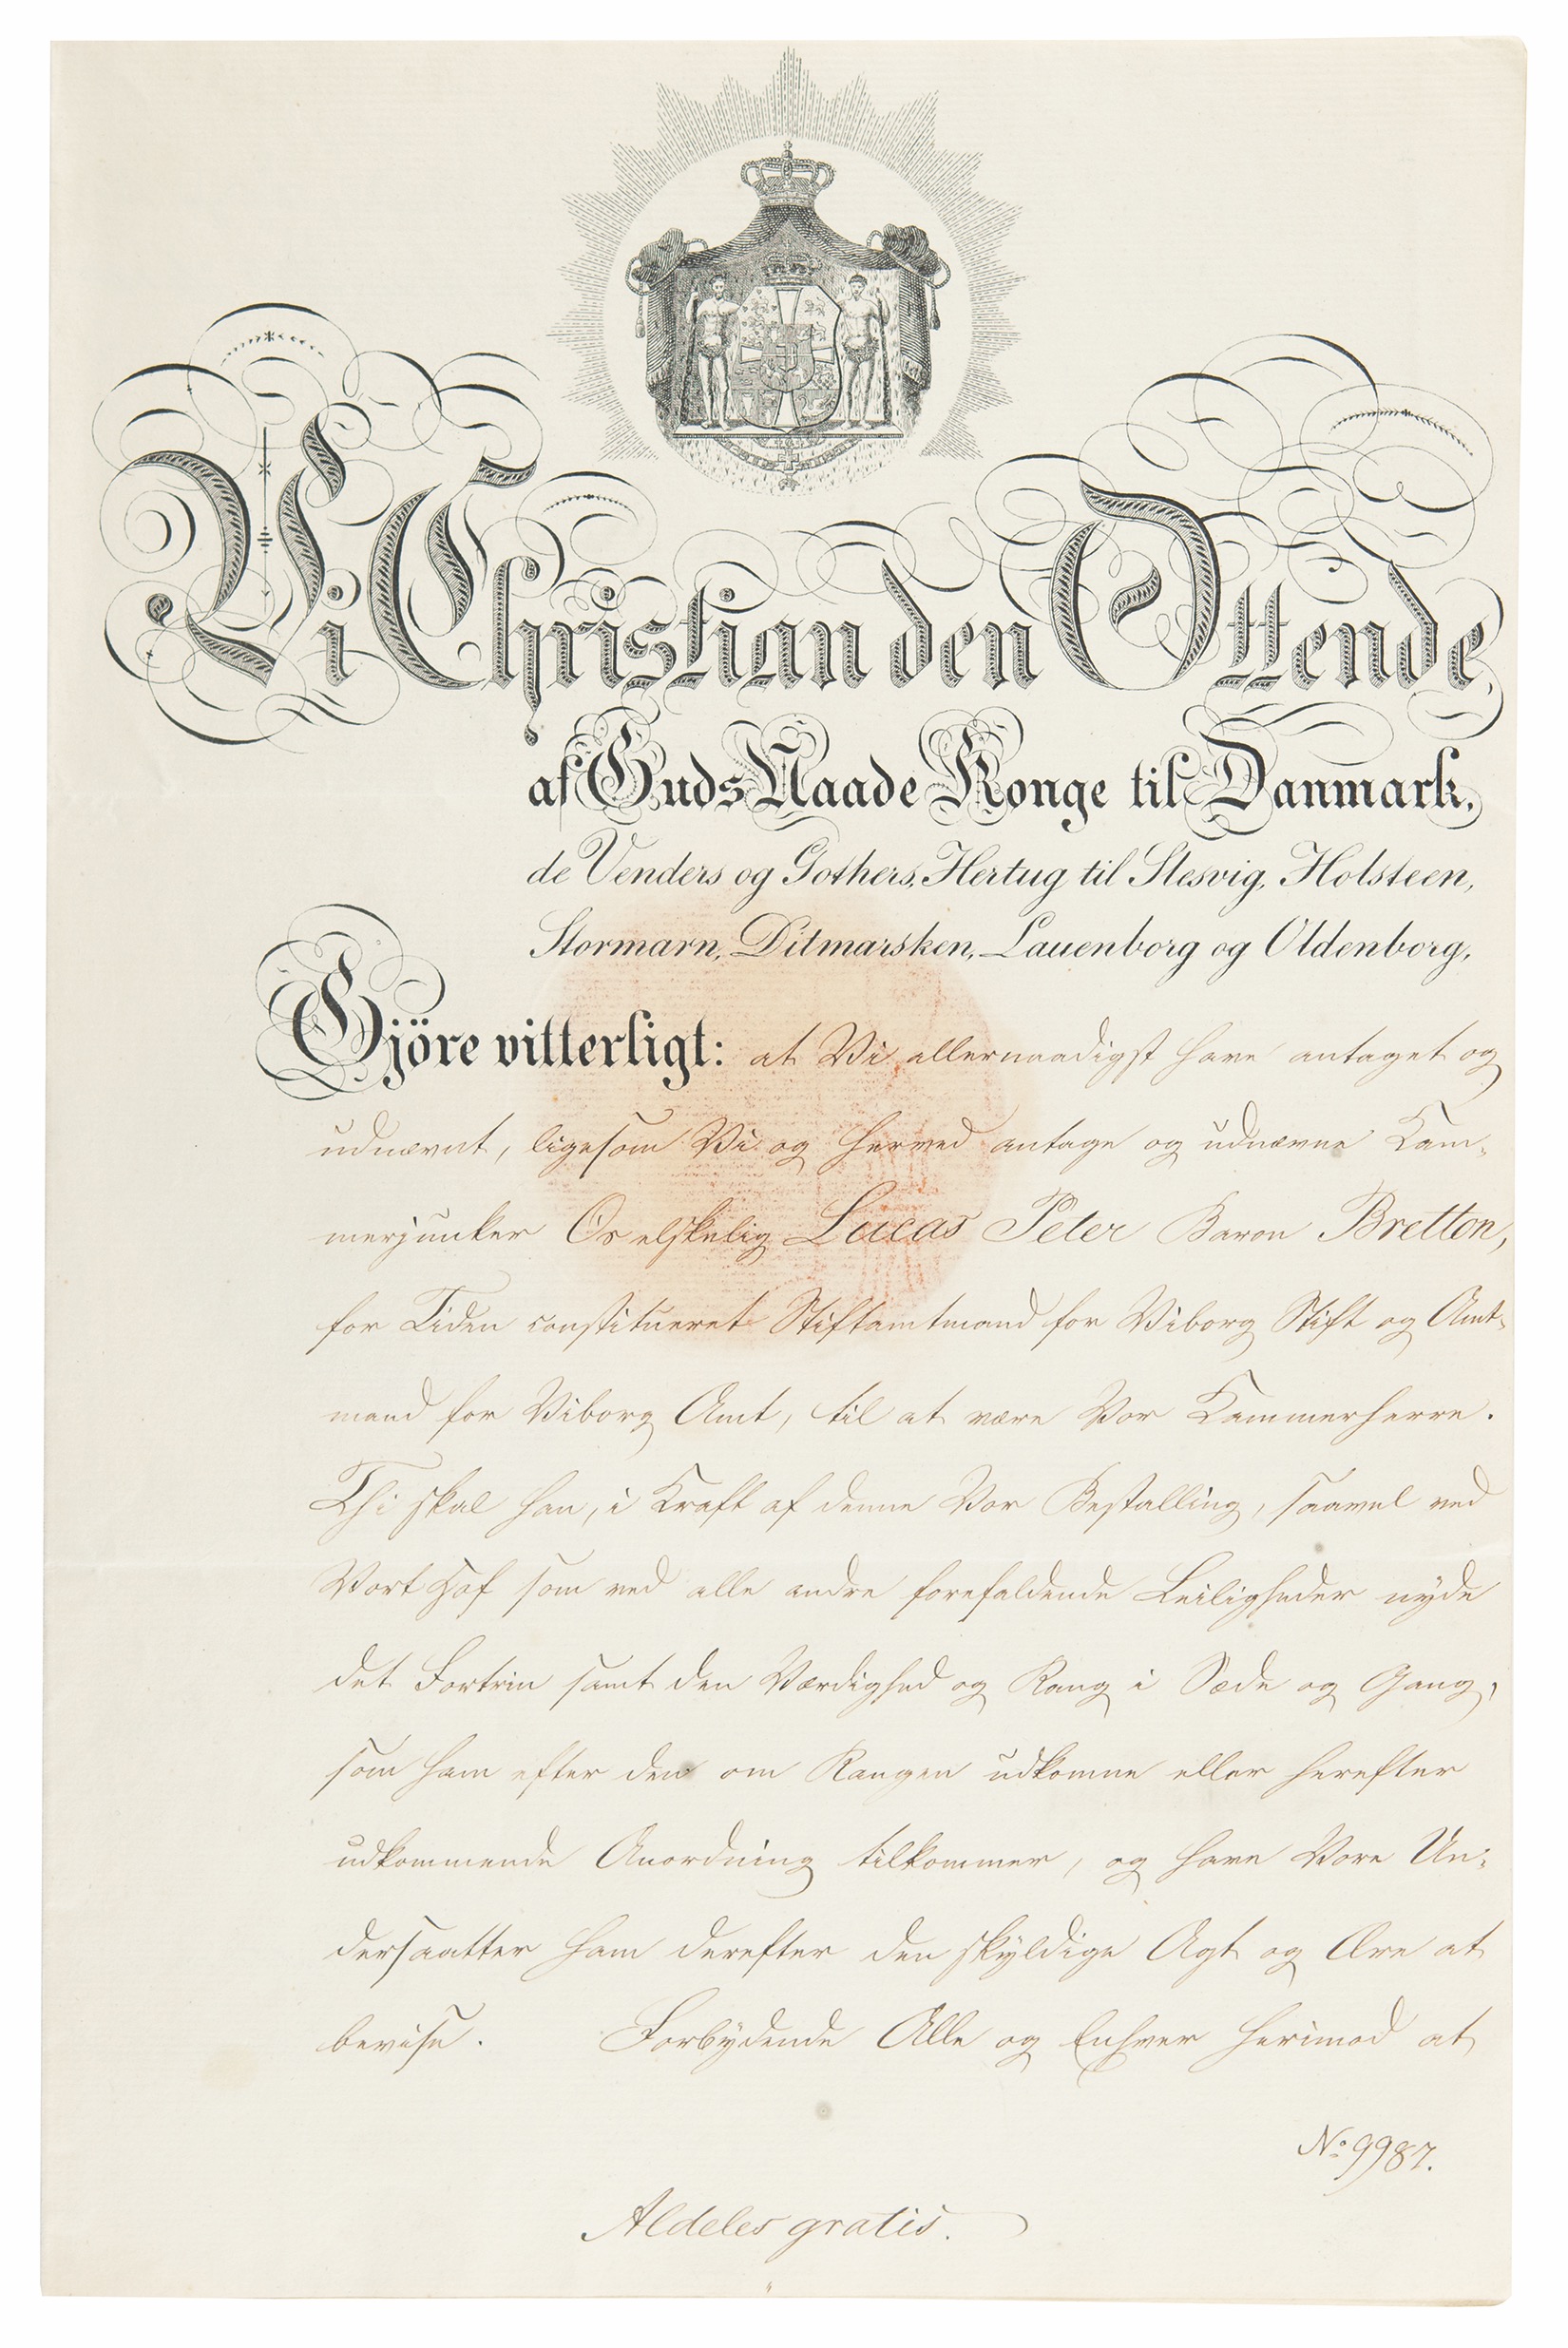 Vi Christian den Ottende,
af Guds Naade Konge til Danmark,
de Venders og Gothers, Hertug til Slesvig, Holsteen,
Stormarn, Ditmarsken, Lauenborg og Oldenborg,
Gjöre vitterligt: at Vi allernaadigst have antaget og
udnævnt, ligesom Vi og herved antage og udnævne Kam-
merjunker Os elskelig Lucas Peter Baron Bretton,
for Tiden constitueret Stiftamtmand for Viborg Stift og Amt-
mand for Viborg Amt, til at være Vor Kammerherre.
Thi skal han, i Kraft af denne Vor Bestalling, saavel ved
Vort Hof som ved alle andre forefaldende Leiligheder nyde
det Fortrin samt den Værdighed og Rang i Sæde og Gang,
som ham efter den om Rangen udkomne eller herefter
udkommende Anordning tilkommer, og have Vore Un-
dersaatter ham derefter den skyldige Agt og Ære at
bevise. Forbydende Alle og Enhver herimod at
No 9987.
Aldeles gratis.